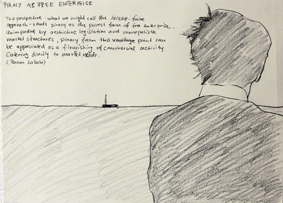 PIRACY AS FREE ENTERPRISE
This perspective what we might call the laissez-faire
approach - reads piracy as the purest form of free enterprise.
Unimpeded by restrictive legislation and monopolistic
market structures, piracy from this vantage point can
be appreciated as a flourishing of commercial activity
catering directly to market needs
(Ramon Lobato)